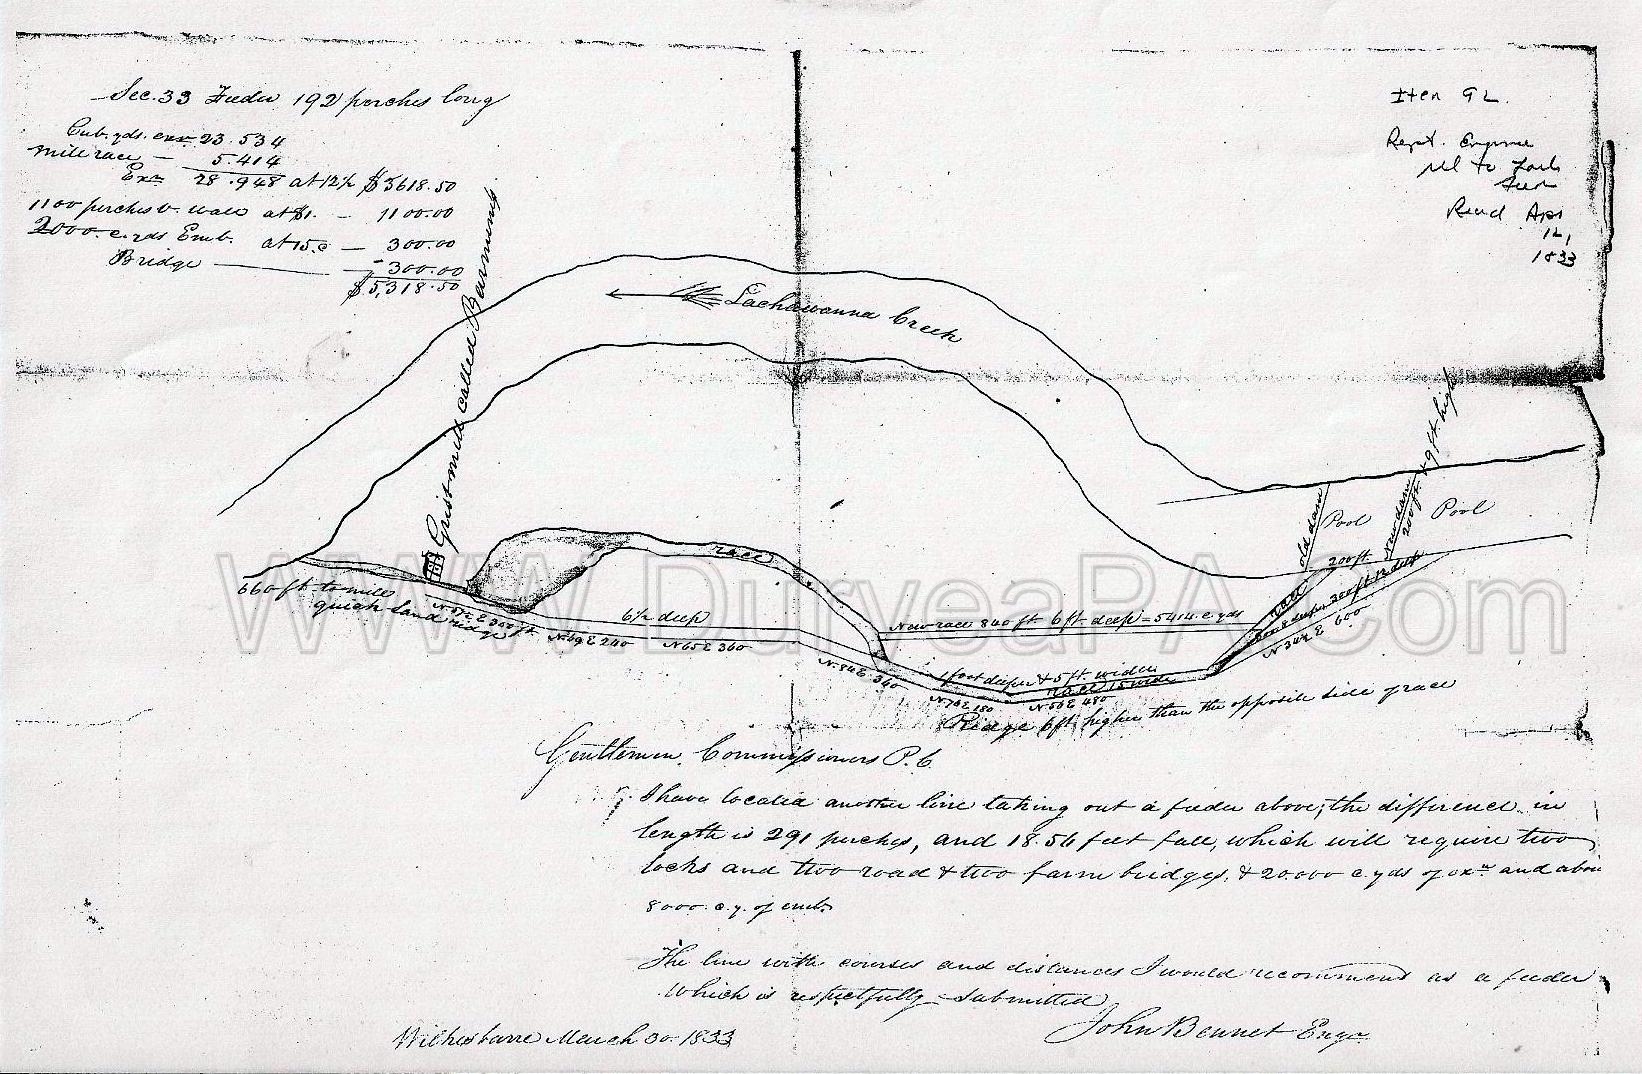 Sec. 33 Feeder 192 perches long
Cub. yds. exn 23.534
Mill race — 5.414
Exn 28.948 at 12½ $3618.50
1100 perches v. wall at $1. — 1100.00
2000 c. yds Emb. at 15 c — 300.00
Bridge — 300.00
$5,318.50
Item 92.
Rept. Engine
rel to Lack
Feed
Read Apr
12,
1833
Lachawanna Creek
Gristmill called Barnums
old dam
Pool
new dam
200 ft. & 9 ft. high
Pool
200 ft.
race
race
660 ft to
quick sand ridge
N 57½ E 300 ft
N 49 E 240
6½ deep
N 65 E 360
New race 840 ft 6 ft deep = 5414 c. yds
N 84 E 340
1 foot deeper & 5 ft. wider
race 15 wide
N 70 E 180
N 56 E 480
N 34½ E 600
Ridge 6 ft. higher than the opposite side of race
Gentlemen. Commissioners P. C.
I have located another line taking out a feeder above; the difference in
length is 291 perches, and 18.56 feet fall, which will require two
locks and two road & two farm bridges, & 20.000 c. yds of exn and abou
8000 c. y. of emb.
The line with courses and distances I would recommend as a feeder
Which is respectfully Submitted
John Bennet Engr
Wilkesbarre March 30. 1833
WWW.DuryeaPA.Com